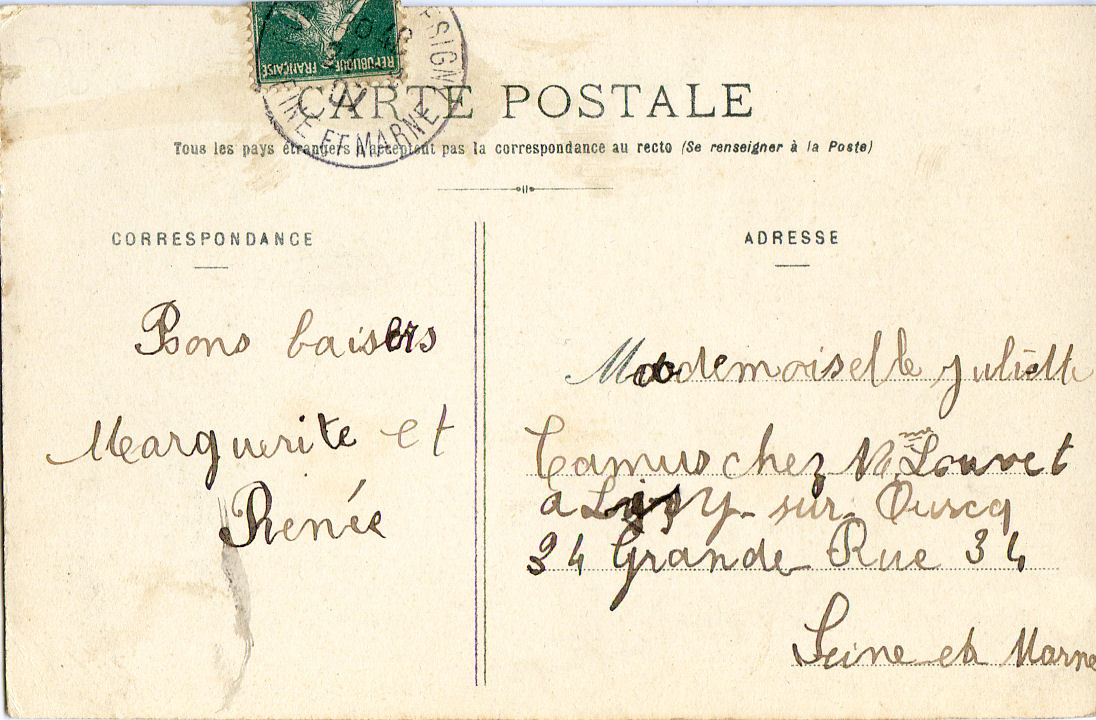 REPUBLIQUE FRANÇAISE
SEINE ET MARNE
CARTE POSTALE
Tous les pays étrangers n'acceptent pas la correspondance au recto (Se renseigner à la Poste)
CORRESPONDANCE
Bons baisers
Marguerite et
Renée
ADRESSE
Mademoiselle Juliette
Camus chez M. Louvet
à Lizy-sur-Ourcq
34 Grande Rue 34
Seine et Marne